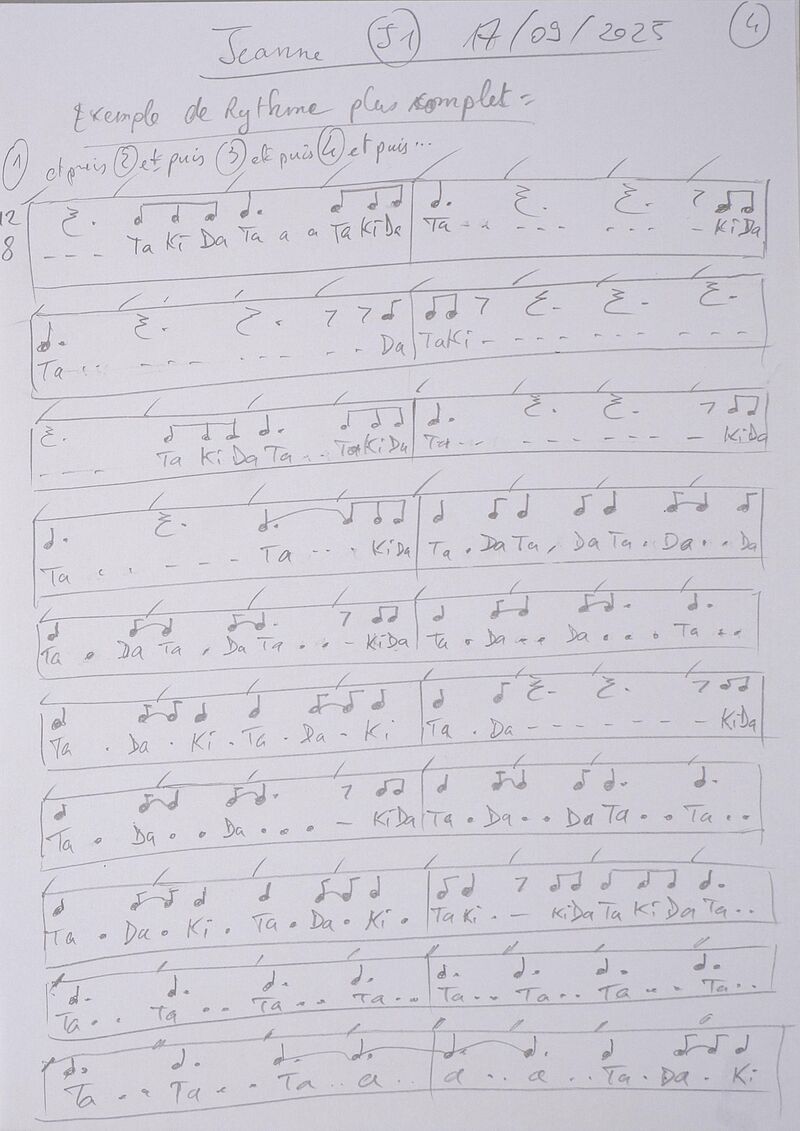 Jeanne S1 17/09/2025 4
Exemple de Rythme plus complet =
1 et puis 2 et puis 3 et puis 4 et puis...
12
8
- - - Ta Ki Da Ta a a Ta Ki Da Ta - - - - - - - - - Ki Da
Ta . . . - - - - - - - - Da Ta Ki - - - - - - - - - -
- - - - Ta Ki Da Ta . . Ta Ki Da Ta . . - - - - - - - Ki Da
Ta . . - - - - Ta . . . Ki Da Ta . Da Ta . Da Ta . Da . . Da
Ta . Da Ta . Da Ta . . - Ki Da Ta . Da . . Da . . . Ta . .
Ta . Da . Ki . Ta . Da - Ki Ta . Da - - - - - - - Ki Da
Ta . Da . . Da . . . - Ki Da Ta . Da . . Da Ta . . Ta . .
Ta . Da . Ki . Ta . Da . Ki . Ta Ki . - Ki Da Ta Ki Da Ta . .
Ta . . Ta . . Ta . . Ta . . Ta . . Ta . . Ta . . Ta . .
Ta . . Ta . . Ta . . a . . a . . a . . Ta . Da . Ki